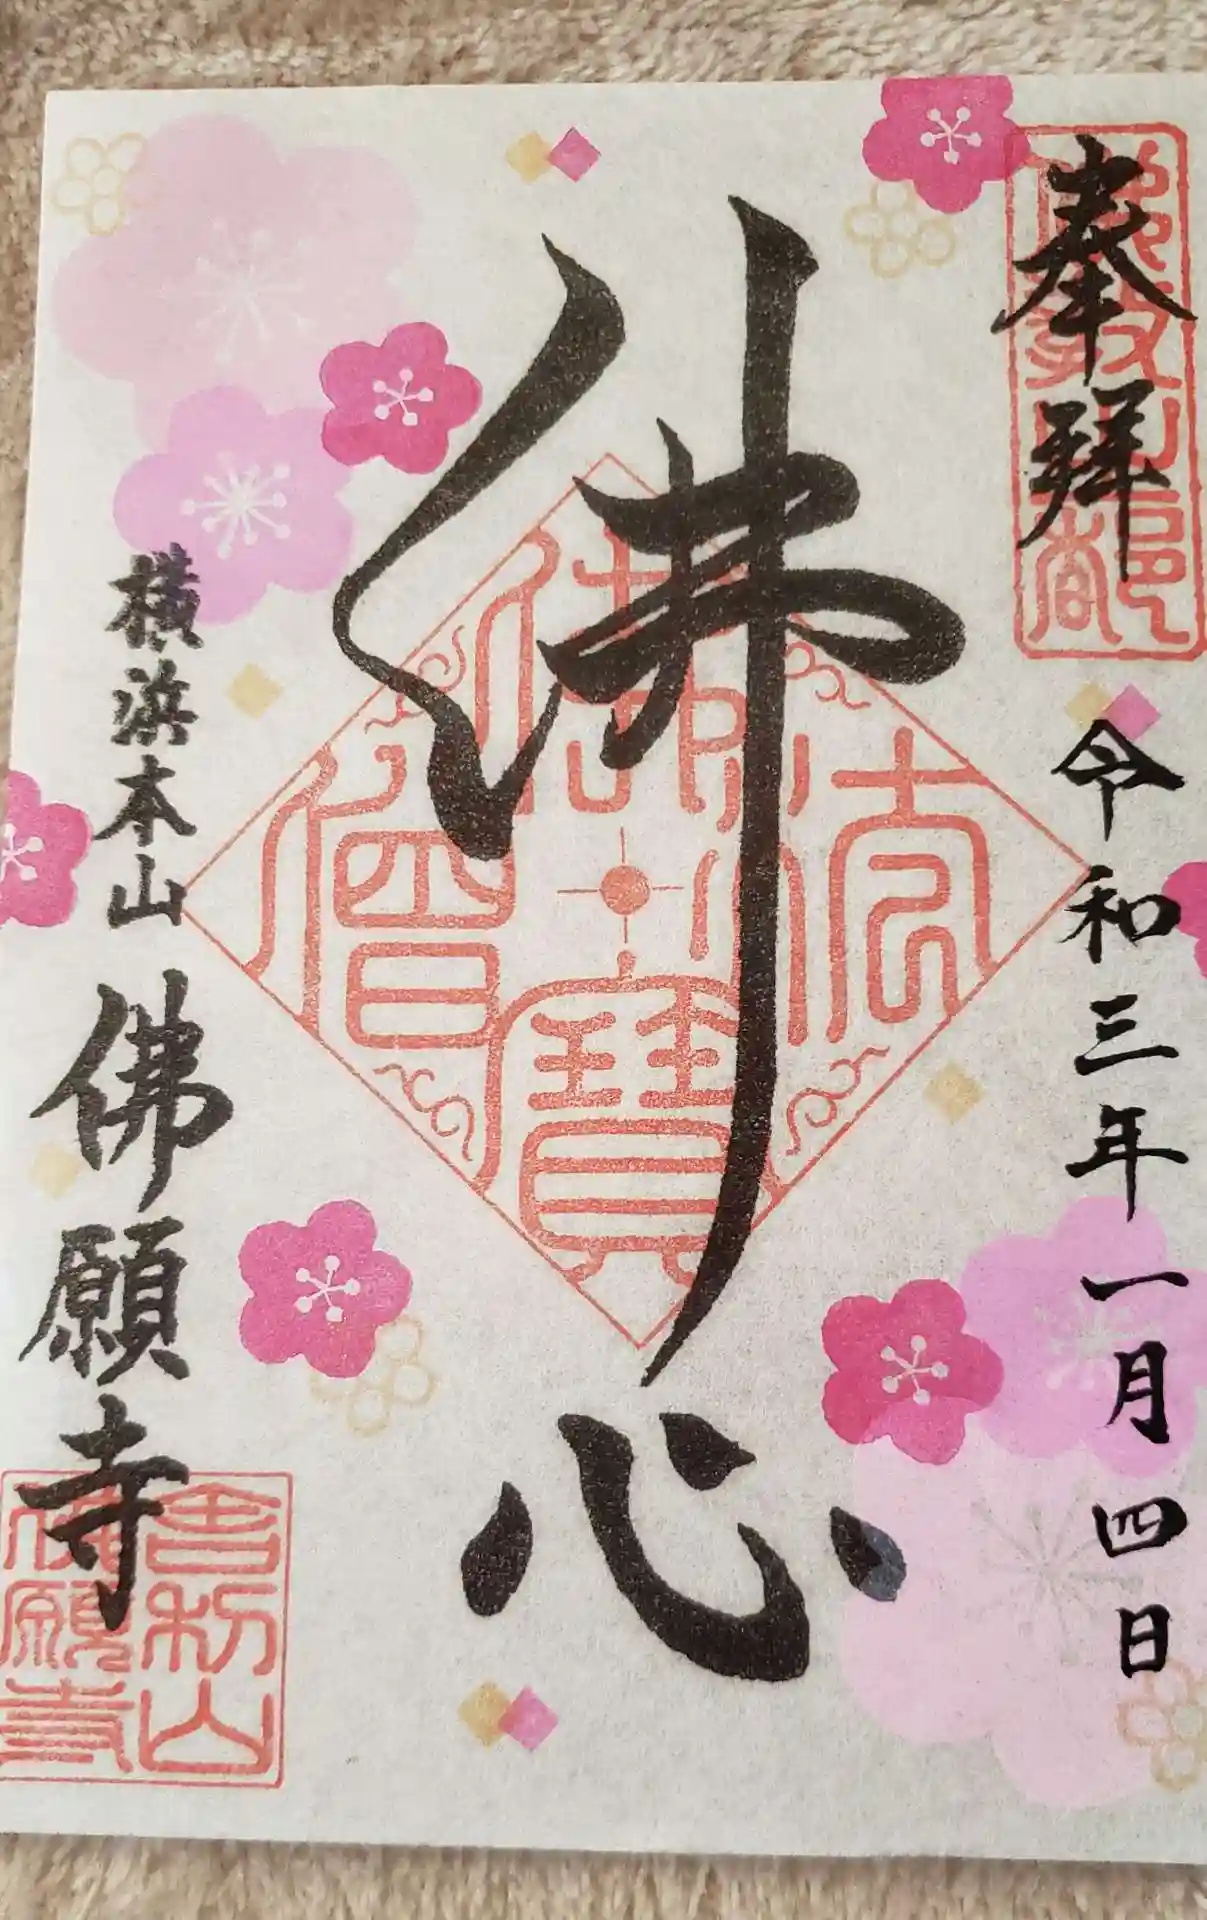 奉拜
令和三年一月四日
佛心
佛法僧寶
横浜本山 佛願寺
舎利山
佛願寺